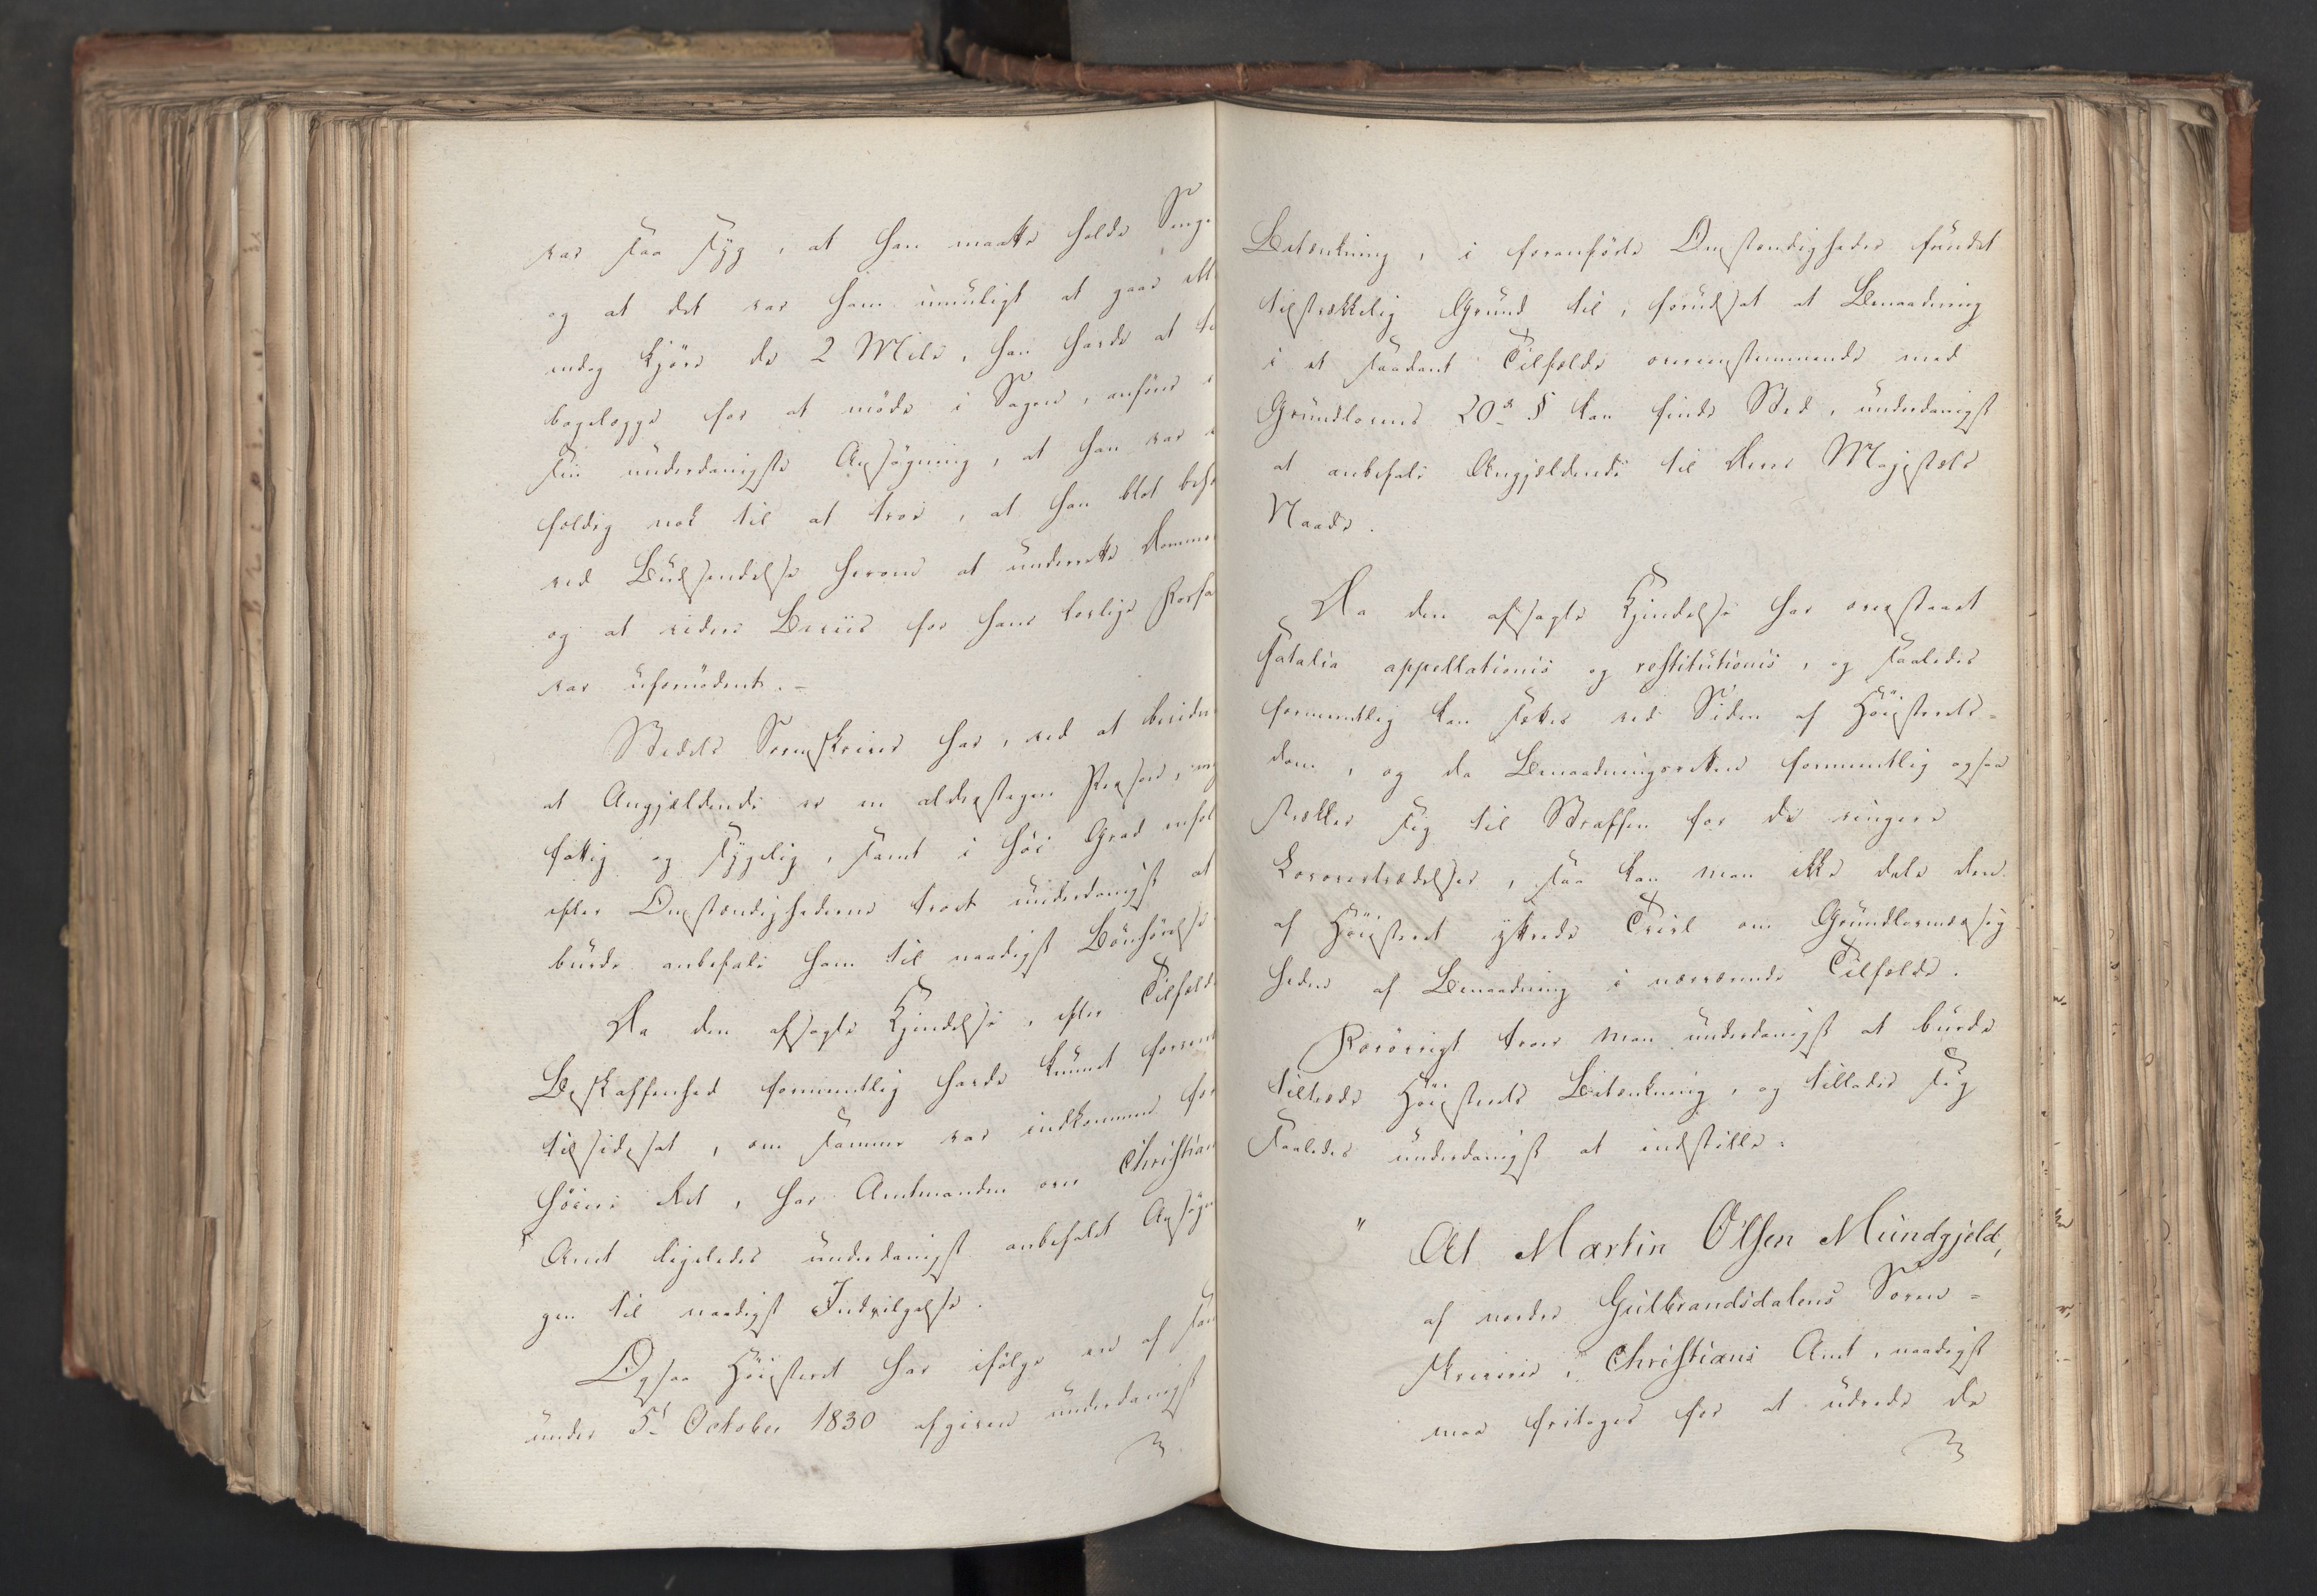 var saa syg, at han maatte holde Senge
og at det var ham umuligt at gaae ell
endog kjøre de 2 Mile, han havde at ti
bagelægge for at møde i Sagen, anføres i
sin underdanigste Ansøgning, at han var
foldig nok til at troe, at han blot beh
ved Budsendelse herom at underrette Domme
og at videre Beviis for hans lovlige Forfa
var ufornødent. -
Stedets Sorenskriver har, ved at bevidne
at Angjældende er en alderstegen Person, me
fattig og sygelig, samt i høi Grad enfol
efter Omstændighederne troet underdanigst at
burde anbefale ham til naadigst Bønhørelse
Da den afsagte Kjendelse, efter Tilfælde
Beskaffenhed formeentlig havde kunnet forvent
tilsidesat, om samme var indkommen for
høiere Ret, har Amtmanden over Christian
Amt ligeledes underdanigst anbefalet Ansøgn
gen til naadigst Indvilgelse.
Ogsaa Høiesteret har ifølge en af sam
under 5t October 1830 afgiven underdanigst
Betænkning, i foranførte Omstændigheder fundet
tilstrækkelig Grund til, forudsat at Benaadning
i et saadant Tilfælde overeensstemmende med
Grundlovens 20de § kan finde Sted, underdanigst
at anbefale Angjældende til Deres Majestæts
Naade.
Da den afsagte Kjendelse har overstaaet
Fatalia appellationis og restitutionis, og saaledes
formeentlig kan sættes ved Siden af Høiesterets-
dom, og da Benaadningsretten formeentlig ogsaa
strækker sig til Straffen for de ringere
Lovovertrædelser, saa kan man ikke dele den
af Høiesteret yttrede Tvivl om Grundlovmæssig
heden af Benaadning i nærværende Tilfælde.
Forøvrigt troer man underdanigst at burde
tiltræde Høiesterets Betænkning, og tillader sig
saaledes underdanigst at indstille:
" At Martin Olsen Mundgjeld,
af nordre Gulbrandsdalens Soren-
skriverie i Christians Amt, naadigst
maa fritages for at udrede de